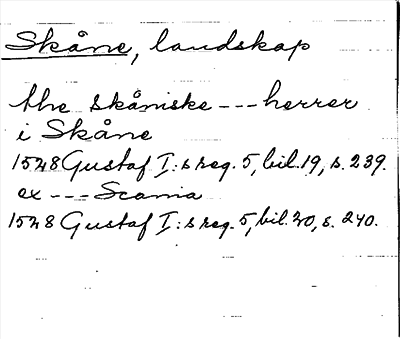 Skåne, landskap
the skåniske --- herrer
i Skåne
1528 Gustaf I:s reg. 5, bil. 19, s. 239.
ex --- Scania
1528 Gustaf I:s reg. 5, bil. 20, s. 240.